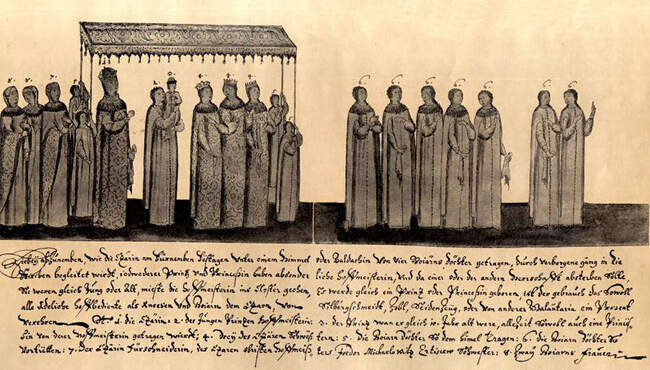 wie die Czarin am fürnembsten Festagen unter einem Himmel oder Baldachin von vier Boiarins Döchter getragen, durch verborgene gäng in die
Kirchen begleitet wirdt, iedwederer Printz und Princessin haben absonder liche Hoffmeisterin, und da eine oder der andern Herrschafft absterben solte
Sie weren gleich Jung oder Alt, müste die Hoffmeisterin ins Closter gehen. Es werde gleich ein Printz oder Princessin geboren, ist der gebrauch das sowoll
alle Adeliche Hoffbediente als Knessen und Boiarn dem Czaren von Silbergschmeidt, Zobl, Seidenzeug, oder von anderer ein Present
verehren No 1. die Czarin: 2. des Jungen Printzen Hoffmeisterin: 3. der Printz war er gleich 10 Jahr alt were, alles it sowoll auch eine Princes-
sin von derer Hoffmeisterin getragen wirdt; 4. Drey des Czaren Schwes- tern: 5. die Boiarn Döchter So dem himel tragen: 6. die Boiarn Döchter So
Vortretten: 7. der Czarin fürschneiderin, des Czaren Obristen Hoffmeis- ters Fedor Michaelowitz Schwester: 8. Zway Boiarns Frauen